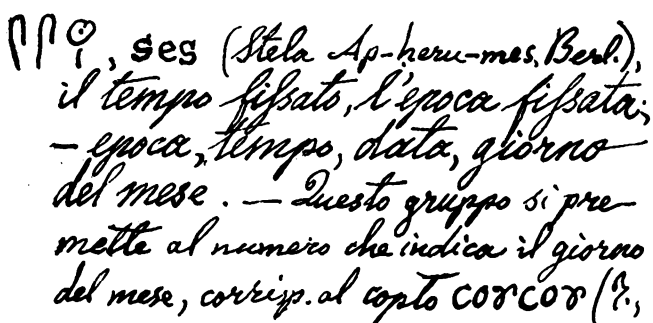 𓋴𓋴𓇳𓏤, ses (Stela Ap-heru-mes, Berl.),
il tempo fiſsato, l'epoca fiſsata;
— epoca, tempo, data, giorno
del mese. — Questo gruppo si pre-
mette al numero che indica il giorno
del mese, corrisp. al copto ⲥⲟⲩⲥⲟⲩ (?,